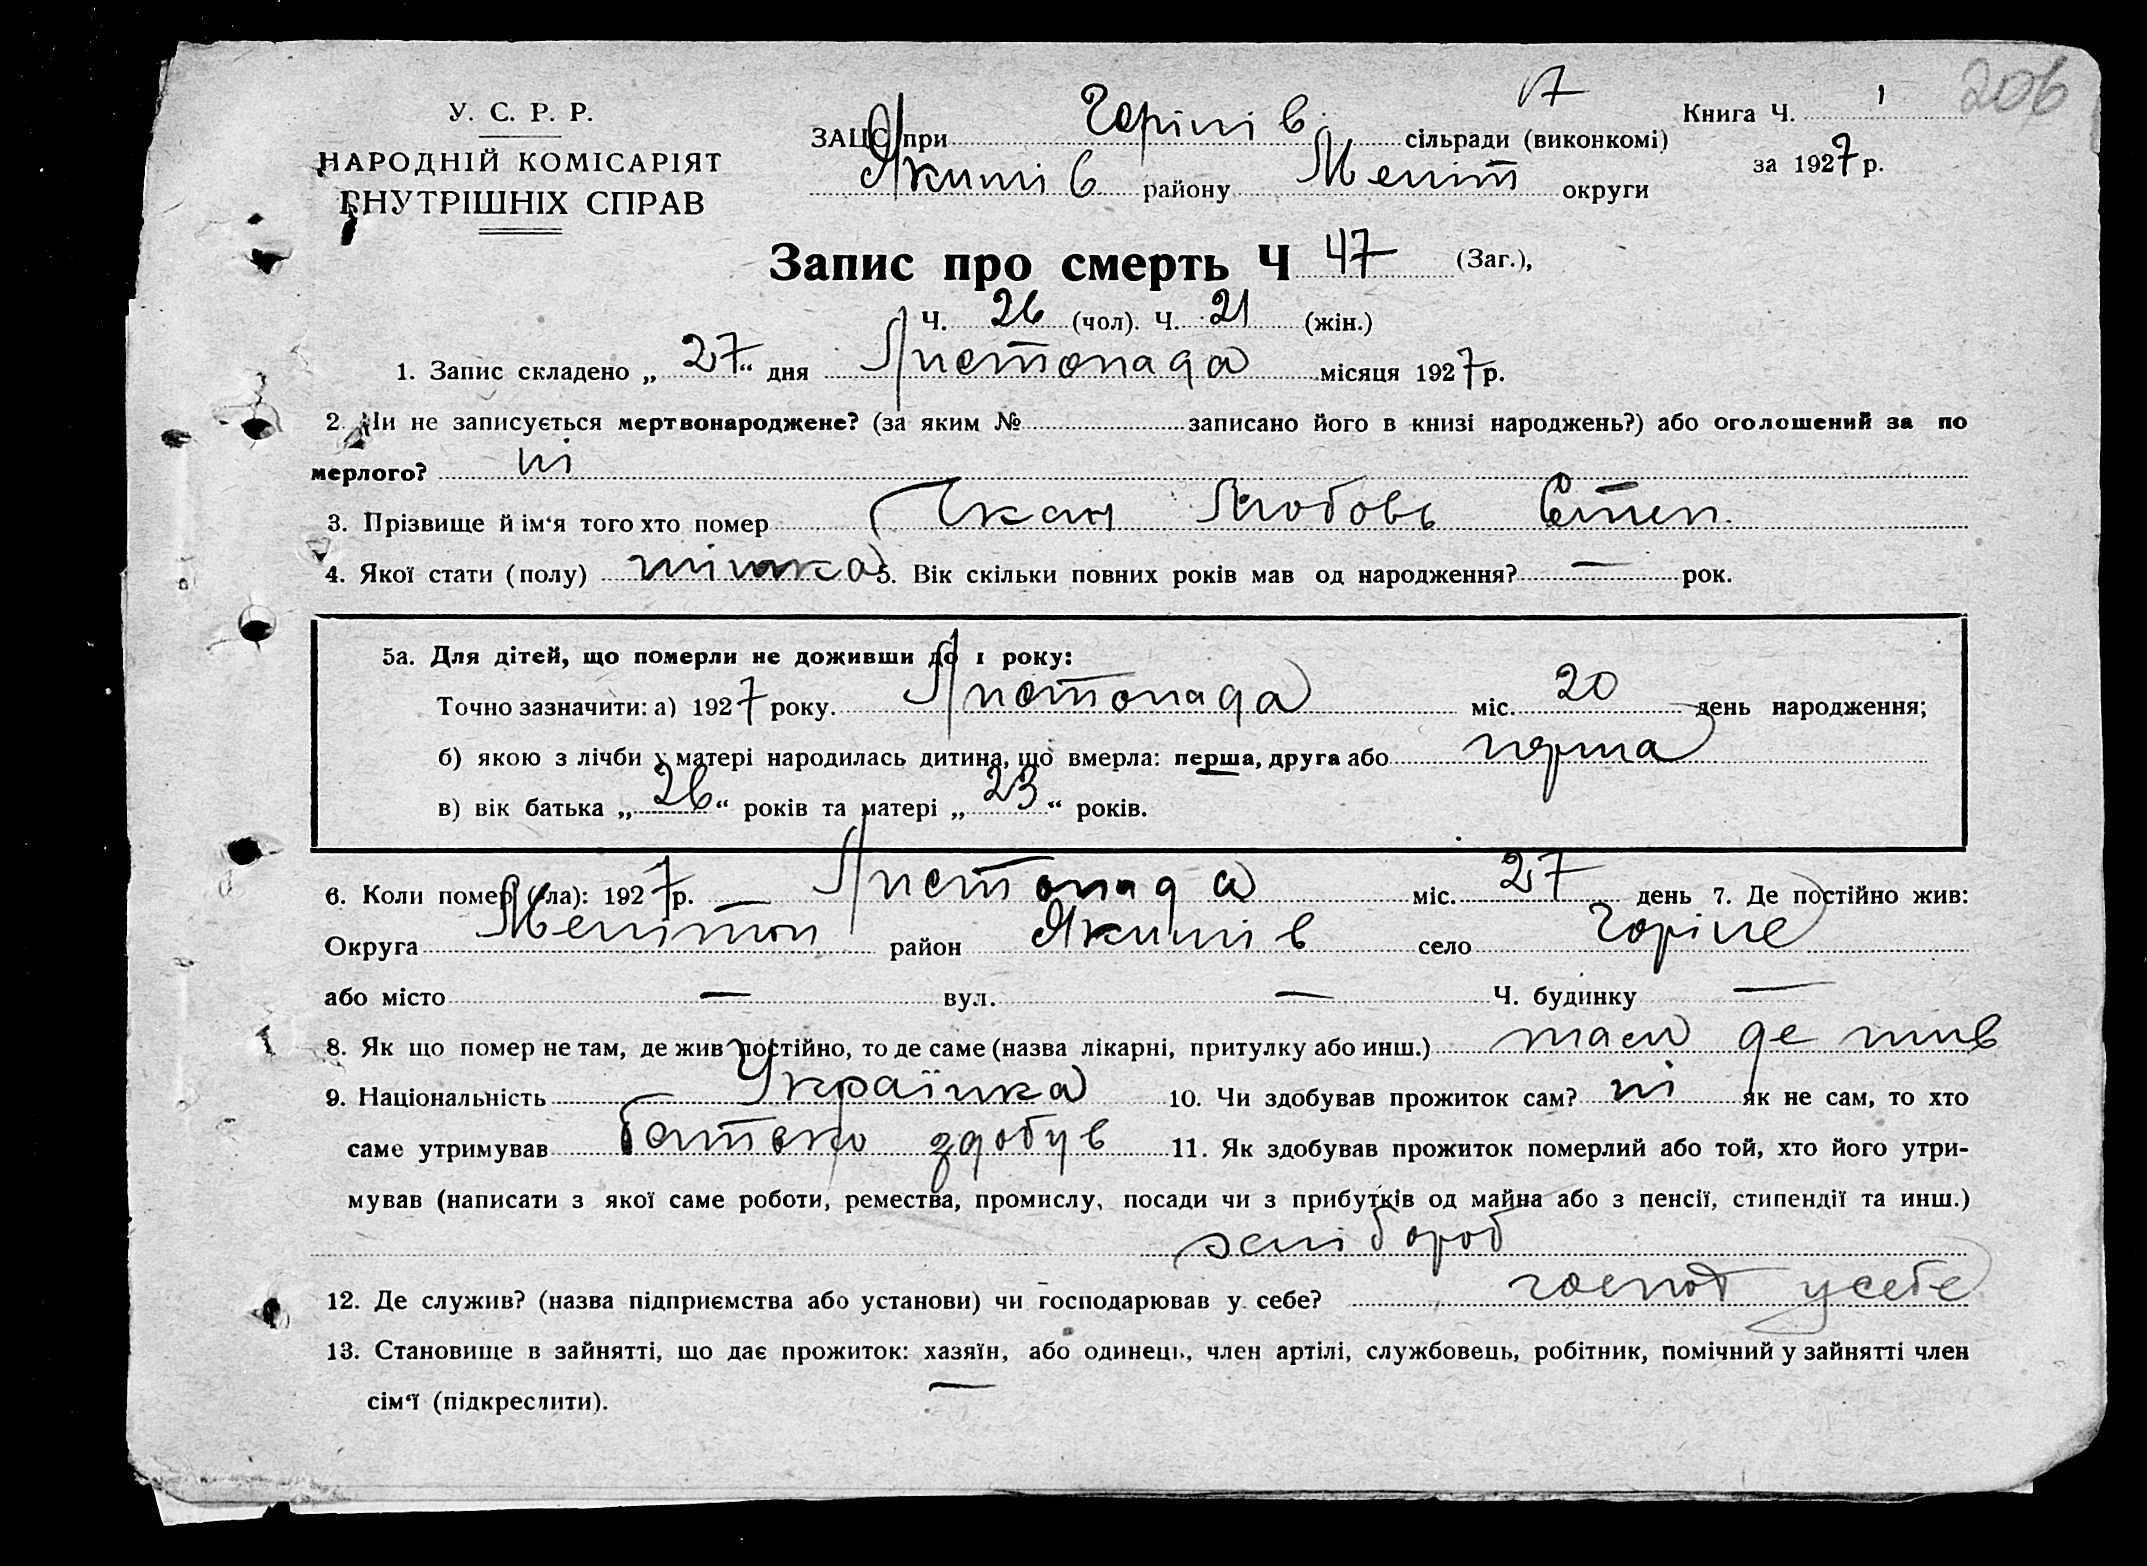 206
У. С. Р. Р.
НАРОДНІЙ КОМІСАРІЯТ
ВНУТРІШНІХ СПРАВ
ЗАЦС при сільради (виконкомі)
Якимів району Меліт округи
Книга Ч. 1
за 1927 р.
Запис про смерть Ч 47 (Заг.),
Ч. 26 (чол). Ч. 21 (жін.)
1. Запис складено „ 27 “ дня Листопада місяця 1927 р.
2. Чи не записується мертвонароджене? (за яким № записано його в книзі народжень?) або оголошений за по
мерлого? ні
3. Прізвище й ім‘я того хто помер Любовь Степ.
4. Якої стати (полу) жіноча 5. Вік скільки повних років мав од народження? — рок.
5а. Для дітей, що померли не доживши до 1 року:
Точно зазначити: а) 1927 року. Листопада міс. 20 день народження;
б) якою з лічби у матері народилась дитина, що вмерла: перша, друга або перша
в) вік батька „ 26 “ років та матері „ 23 “ років.
6. Коли помер (ла): 1927 р. — Листопада міс. 27 день 7. Де постійно жив:
Округа Мелітоп район Якимів село
або місто — вул. — Ч. будинку —
8. Як що помер не там, де жив постійно, то де саме (назва лікарні, притулку або инш.) там де жив
9. Національність Українка 10. Чи здобував прожиток сам? ні як не сам, то хто
саме утримував Батько здобув 11. Як здобував прожиток померлий або той, хто його утри-
мував (написати з якої саме роботи, ремества, промислу, посади чи з прибутків од майна або з пенсії, стипендії та инш.)
хлібороб
12. Де служив? (назва підприємства або установи) чи господарював у себе? господ у себе
13. Становище в зайнятті, що дає прожиток: хазяїн, або одинець, член артілі, службовець, робітник, помічний у зайнятті член
сім‘ї (підкреслити). —